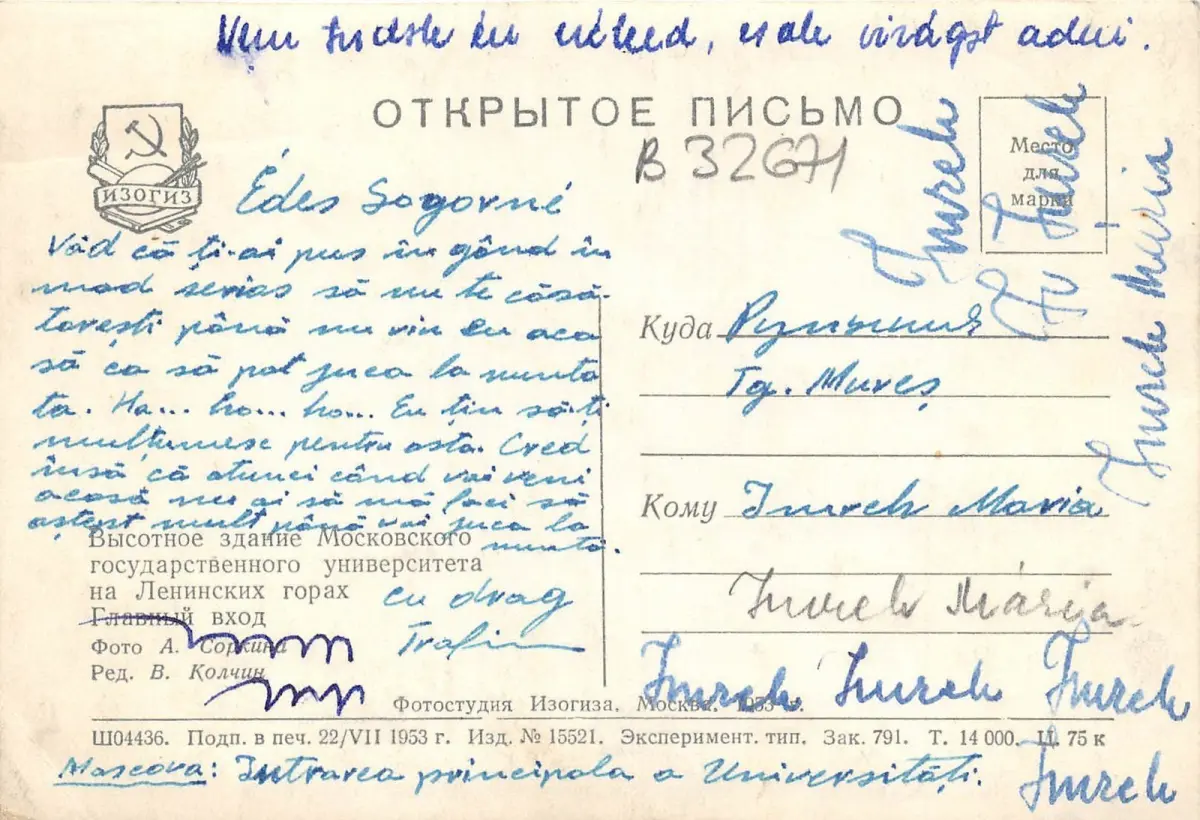 ОТКРЫТОЕ ПИСЬМО
В 32671
ИЗОГИЗ
Место
для
марки
Édes Sogorné
Văd că ți-ai pus în gând în
mod serios să nu te căsă-
torești până nu vin eu aca
să ca să pot juca la nunta
ta. Ha... ho... ho... Eu țin să-ți
mulțumesc pentru asta. Cred
însă că atunci când voi veni
acasă nu ai să mă faci să
aștept mult până voi juca la
nuntă.
cu drag
Traian
Высотное здание Московского
государственного университета
на Ленинских горах
Главный вход
Фото А. Соркина
Ред. В. Колчин
Куда Румыния
Tg. Mureș
Кому Imreh Maria
Imreh Mária
Imreh
Imreh
Imreh Mária
Imreh Imreh Imreh
Imreh
Фотостудия Изогиза. Москва. 1953 г.
Ш04436. Подп. в печ. 22/VII 1953 г. Изд. № 15521. Эксперимент. тип. Зак. 791. Т. 14 000. Ц. 75 к
Moscova: Intrarea principala a Universității.